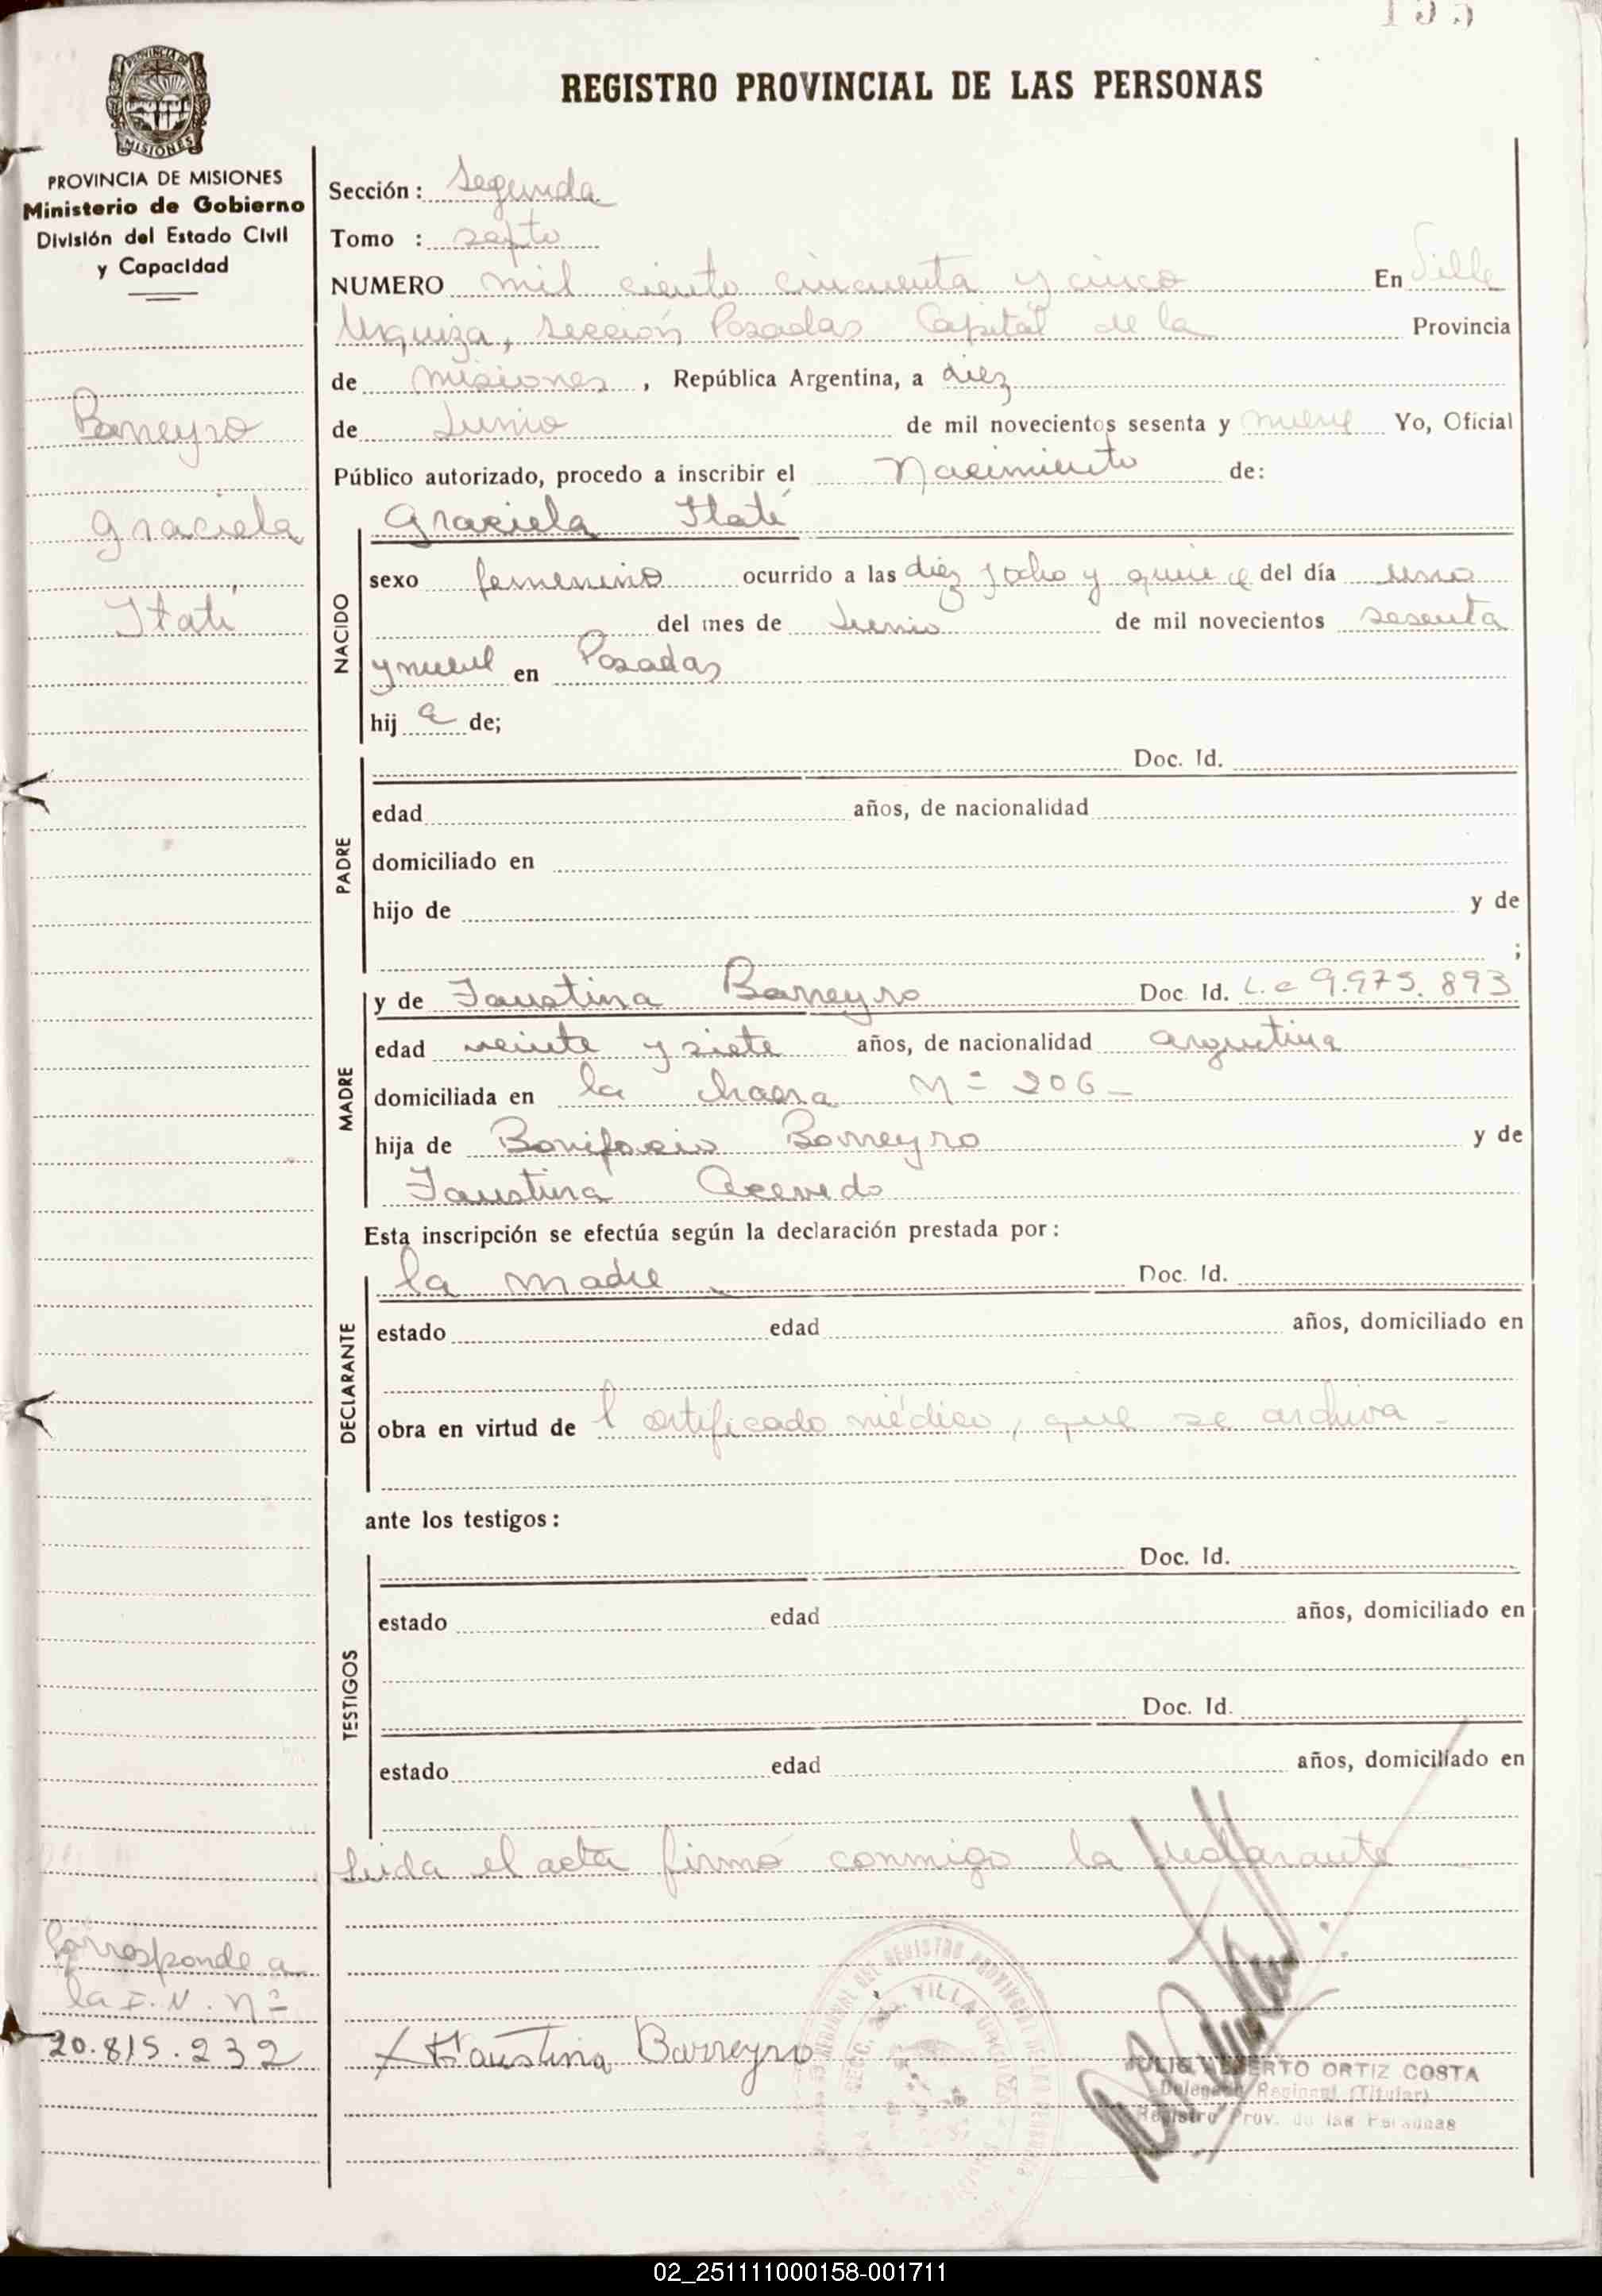 155
REGISTRO PROVINCIAL DE LAS PERSONAS
PROVINCIA DE
MISIONES
PROVINCIA DE MISIONES
Ministerio de Gobierno
División del Estado Civil
y Capacidad
Barreyro
Graciela
Itatí
Sección: Segunda
Tomo :
NUMERO mil ciento cincuenta y cinco En Villa
Urquiza, Sección Posadas Capital de la Provincia
de Misiones, República Argentina, a diez
de Junio de mil novecientos sesenta y nueve Yo, Oficial
Público autorizado, procedo a inscribir el Nacimiento de:
NACIDO
Graciela Itatí
sexo femenino ocurrido a las diez y ocho y quince del día uno
del mes de Junio de mil novecientos sesenta
y nueve en Posadas
hij a de;
PADRE
Doc. Id.
edad años, de nacionalidad
domiciliado en
hijo de y de
;
MADRE
y de Faustina Barreyro Doc. Id. L.C 9.975.893
edad veinte y siete años, de nacionalidad argentina
domiciliada en la chacra Nº 206-
hija de Bonifacio Barreyro y de
Faustina Acevedo
Esta inscripción se efectúa según la declaración prestada por:
DECLARANTE
la madre Doc. Id.
estado edad años, domiciliado en
obra en virtud de l certificado médico, que se archiva -
ante los testigos:
TESTIGOS
Doc. Id.
estado edad años, domiciliado en
Doc. Id.
estado edad años, domiciliado en
Leida el acta firmó conmigo la declarante
Corresponde a
la I.N. Nº
20.815.232
X Faustina Barreyro
JULIO ALBERTO ORTIZ COSTA
Delegado Regional (Titular)
Registro Prov. de las Personas
02_251111000158-001711